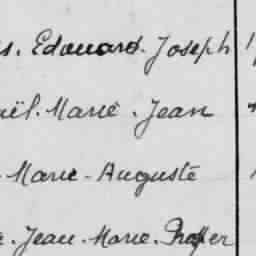 s. Edouard. Joseph
ël. Marie. Jean
- Marie - Auguste
e. Jean. Marie. Prosper